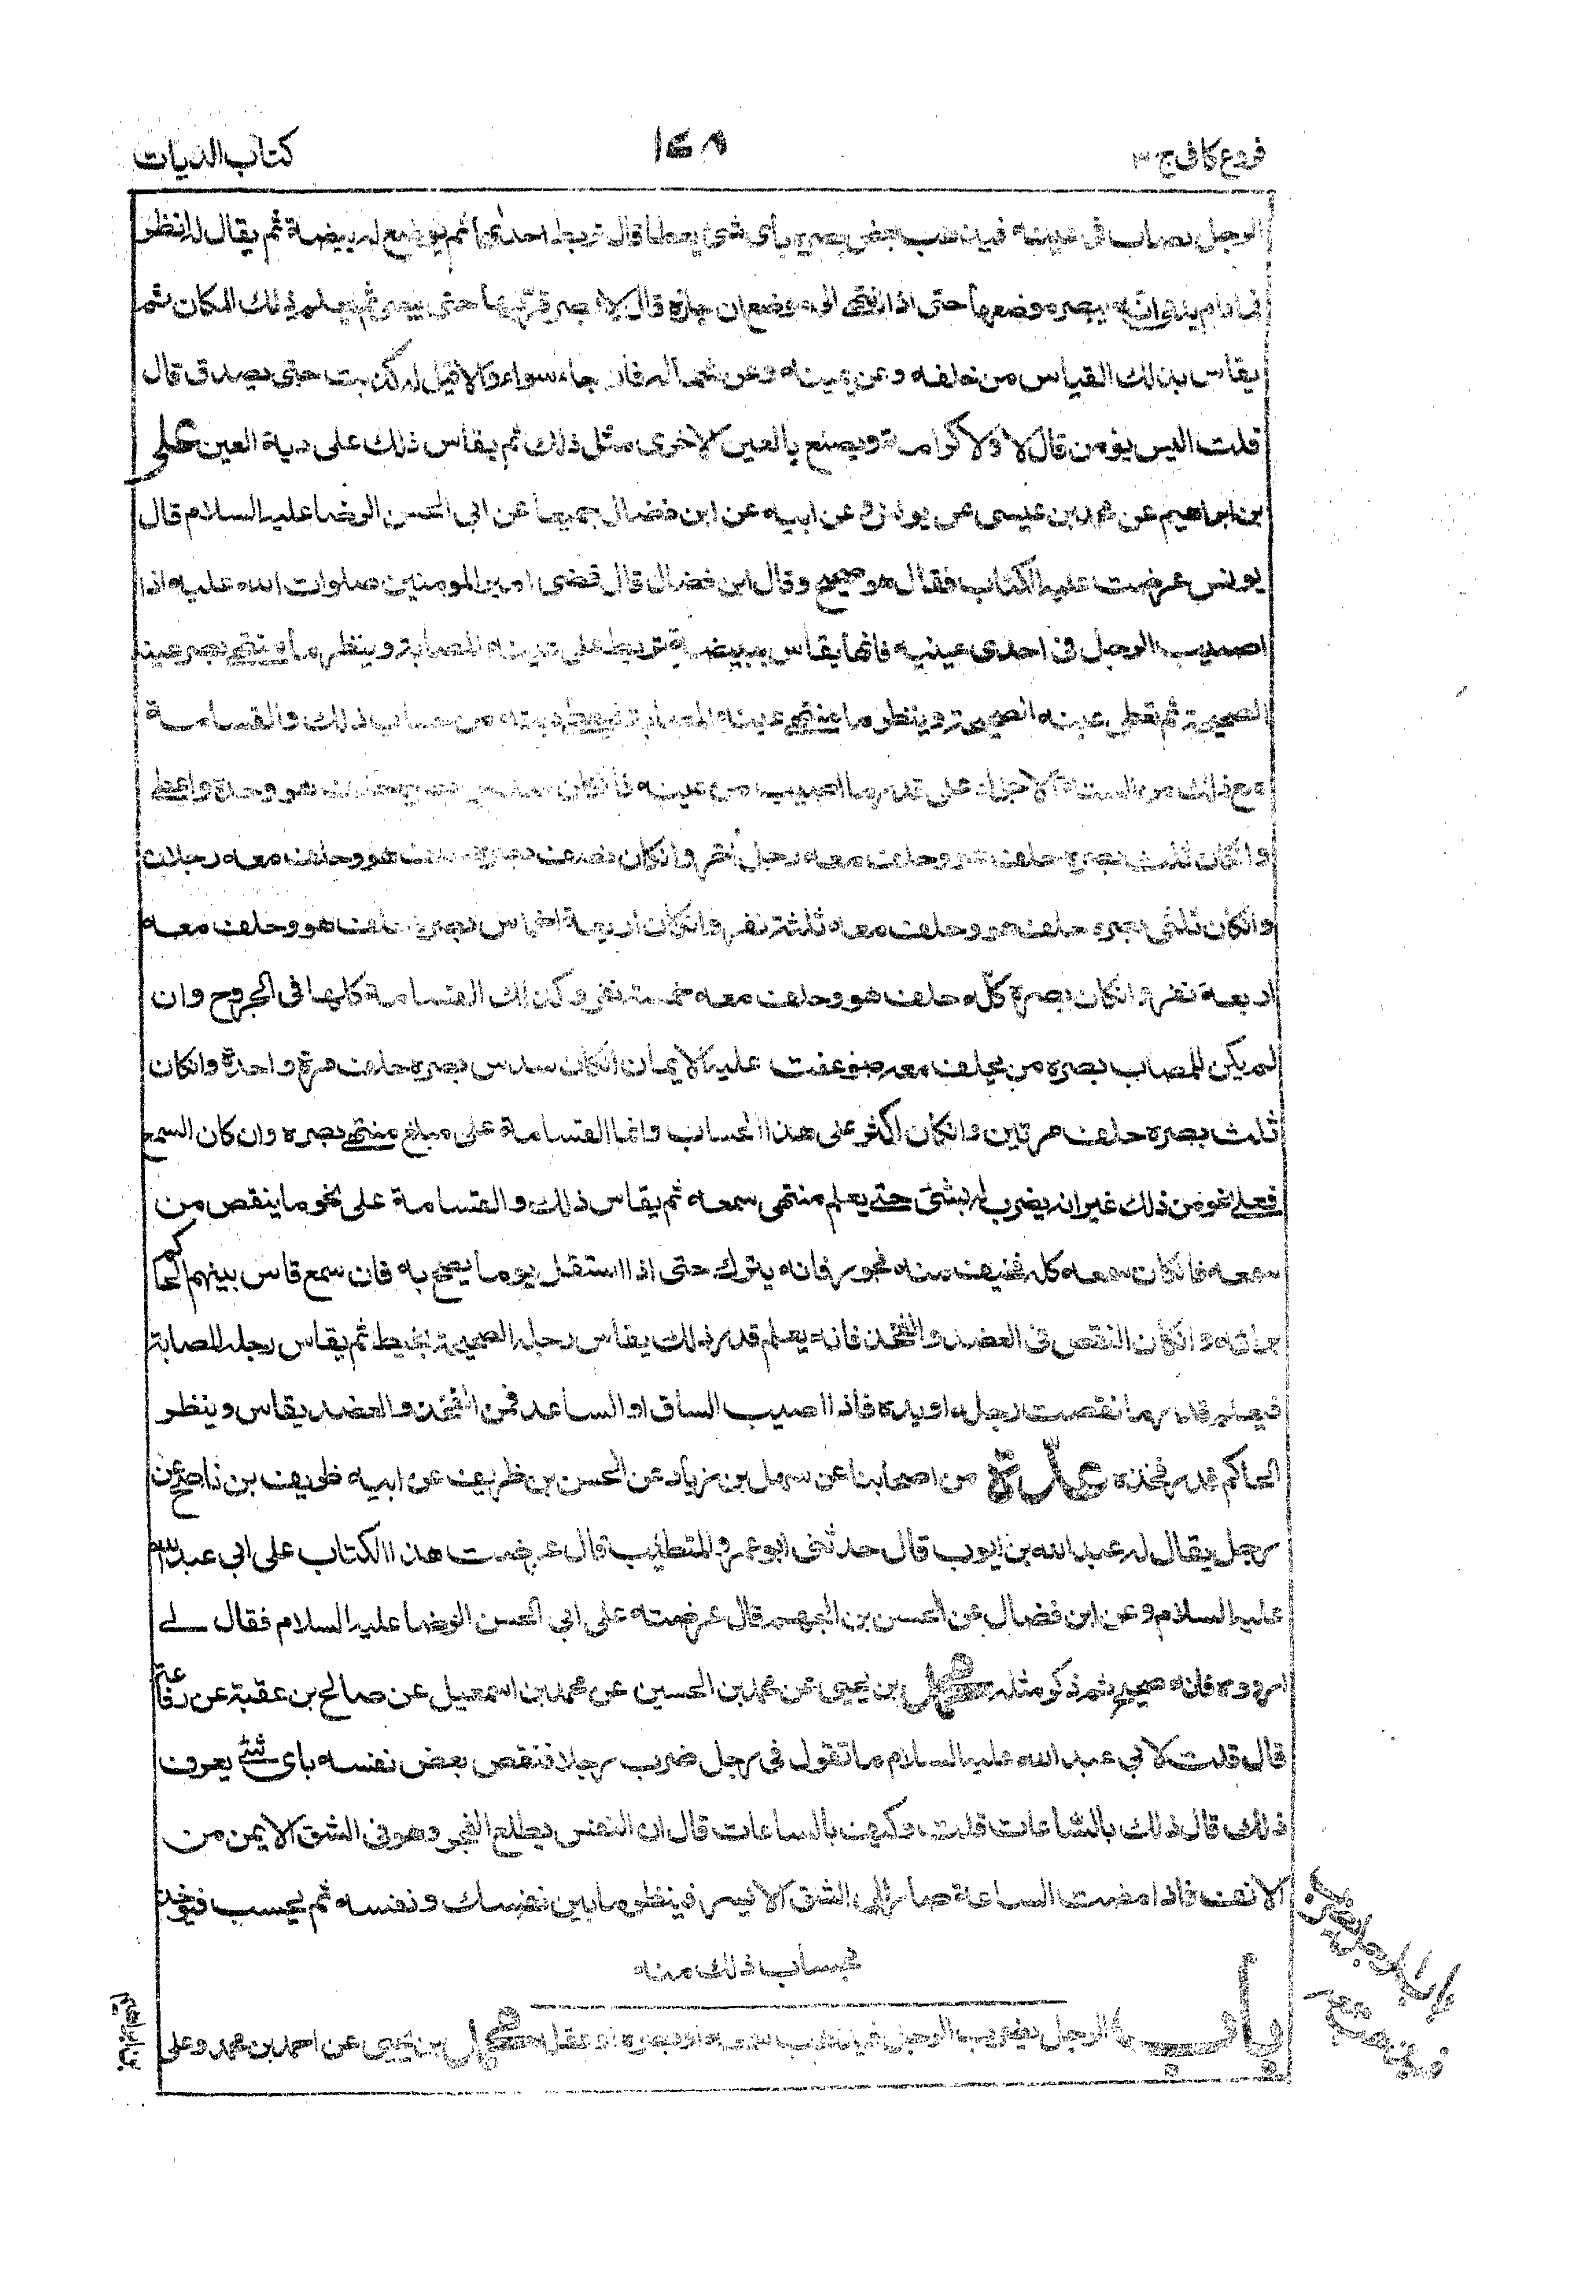 فروع کافی ج ۳
۱۶۸
کتاب الدیات
الرجل یصاب فی عینه فیذهب بعض بصره بأی شئ یعطا قال تربط احدٰهما ثم یوضع له بیضة ثم یقال له انظر
فمادام یدعی انه یبصر موضعها حتی اذا انتهی الی موضع ان جازه قال لا ابصر قربها حتی یبصر ثم یعلم ذلك المکان ثم
یقاس بذلك القیاس من خلفه وعن یمینه وعن شماله فان جاء سواء والا قیل له کذبت حتی یصدق قال
قلت الیس یؤمن قال لا ولا کرامة ویصنع بالعین الاخری مثل ذلك ثم یقاس ذلك علی دیة العین علی
بن ابراهیم عن محمد بن عیسی عن یونس وعن ابیه عن ابن فضال جمیعا عن ابی الحسن الرضا علیه السلام قال
یونس عرضت علیه الکتاب فقال هو صحیح وقال ابن فضال قال قضی امیر المومنین صلوات الله علیه اذا
اصیب الرجل فی احدی عینیه فانما یقاس ببیضة تربط علی عینه المصابة وینظر ما منتهی بصر عینه
الصحیحة ثم تغطی عینه الصحیحة وینظر ما منتهی عینه المصابة فیعطی دیته من حساب ذلك والقسامة
مع ذلك من الستة الاجزاء علی قدر ما اصیب من عینه فانکان سدس بصره حلف هو وحده واعطی
وانکان ثلث بصره حلف هو وحلف معه رجل آخر وانکان نصف بصره حلف هو وحلف معه رجلان
وانکان ثلثی بصره حلف هو وحلف معه ثلثة نفر وانکان اربعة اخماس بصره حلف هو وحلف معه
اربعة نفر وانکان بصره کلّه حلف هو وحلف معه خمسة نفر وکذلك القسامة کلها فی الجروح وان
لم یکن للمصاب بصره من یحلف معه ضوعفت علیه الایمان انکان سدس بصره حلف مرة واحدة وانکان
ثلث بصره حلف مرتین وانکان اکثر علی هذا الحساب وانما القسامة علی مبلغ منتهی بصره وان کان السمع
فعلی نحو من ذلك غیر انه یضرب له بشئ حتی یعلم منتهی سمعه ثم یقاس ذلك والقسامة علی نحو ما ینقص من
سمعه فانکان سمعه کله فخیف منه فجور فانه یترك حتی اذا استقل یوما یصح به فان سمع قاس بینهم الحاکم
برایه وانکان النقص فی العضد والفخذ فانه یعلم قدر ذلك یقاس رجله الصحیحة بخیط ثم یقاس رجله المصابة
فیعلم قدر ما نقصت رجله او یده فاذا اصیب الساق او الساعد فمن الفخذ والعضد یقاس وینظر
الحاکم قدر فخذه عدّة من اصحابنا عن سهل بن زیاد عن الحسن بن ظریف عن ابیه ظریف بن ناصح عن
رجل یقال له عبد الله بن ایوب قال حدثنی ابو عمرو المتطبب قال عرضت هذا الکتاب علی ابی عبد الله
علیه السلام وعن ابن فضال عن الحسن بن الجهم قال عرضته علی ابی الحسن الرضا علیه السلام فقال لے
اروه فانه صحیح ثم ذکر مثله محمد بن یحیی عن محمد بن الحسین عن محمد بن اسمعیل عن صالح بن عقبة عن رفاعة
قال قلت لابی عبد الله علیه السلام ما تقول فی رجل ضرب رجلا فنقص بعض نفسه بای شئ یعرف
ذلك قال ذلك بالساعات قلت وکیف بالساعات قال ان النفس یطلع الفجر وهو فی الشق الایمن من
الانف فاذا مضت الساعة صار الی الشق الایسر فینظر ما بین نفسك ونفسه ثم یحسب فیؤخذ
بحساب ذلك منه
باب الرجل یضرب الرجل فیذهب سمعه وبصره وعقله محمد بن یحیی عن احمد بن محمد وعلی
بن ابراهیم